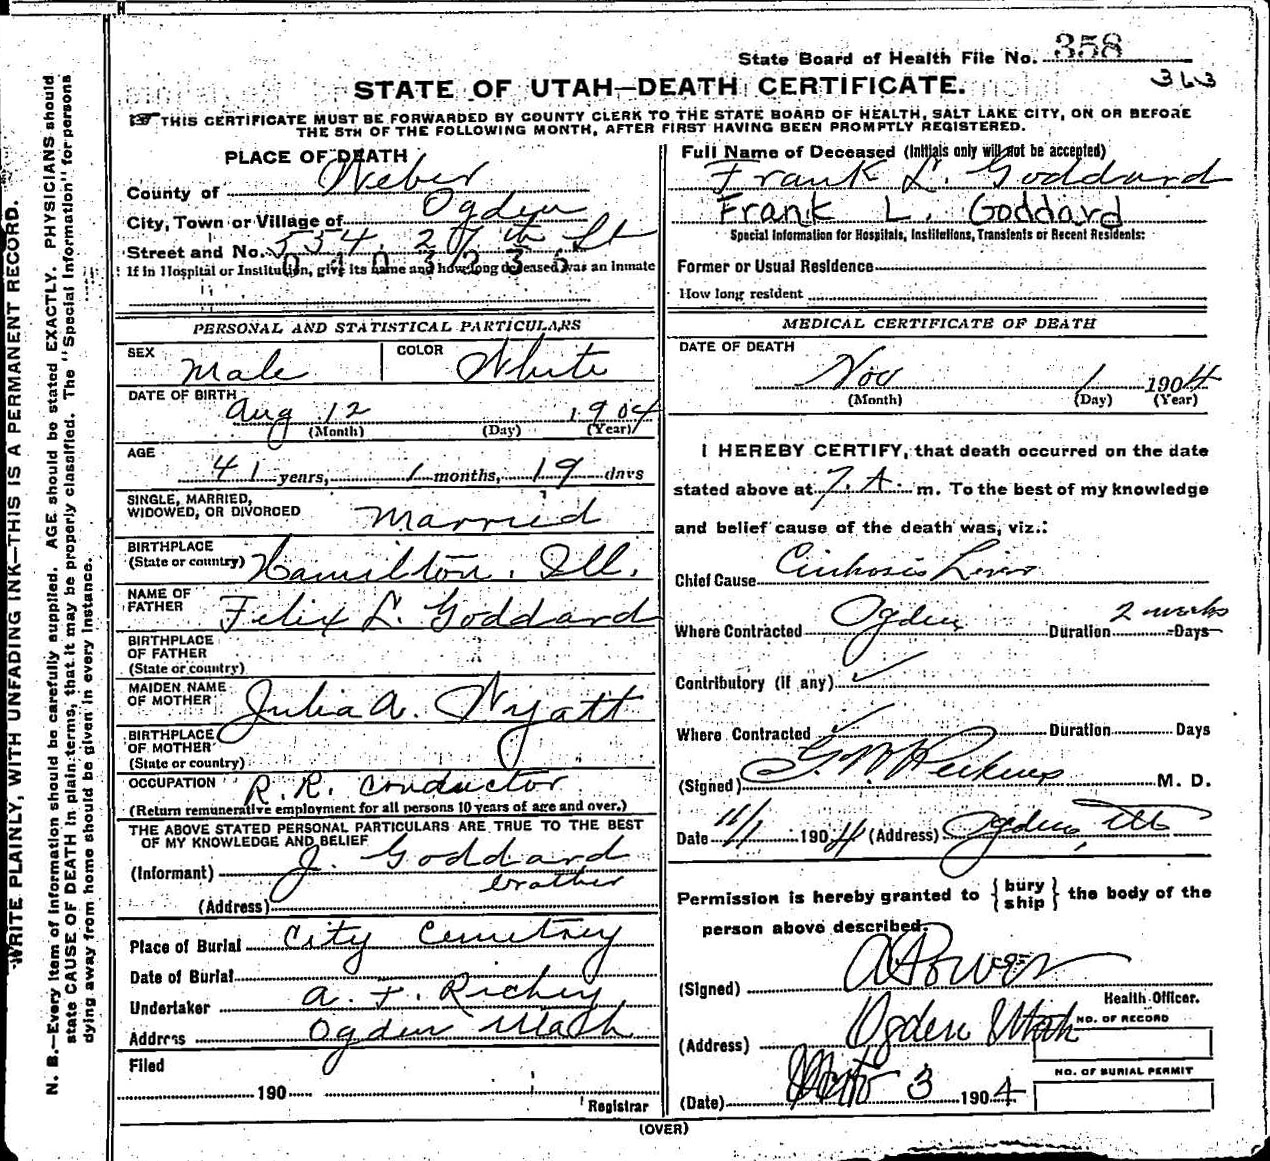 State Board of Health File No. 358
363
STATE OF UTAH—DEATH CERTIFICATE.
THIS CERTIFICATE MUST BE FORWARDED BY COUNTY CLERK TO THE STATE BOARD OF HEALTH, SALT LAKE CITY, ON OR BEFORE
THE 5TH OF THE FOLLOWING MONTH, AFTER FIRST HAVING BEEN PROMPTLY REGISTERED.
WRITE PLAINLY, WITH UNFADING INK—THIS IS A PERMANENT RECORD.
N. B.—Every item of information should be carefully supplied. AGE should be stated EXACTLY. PHYSICIANS should
state CAUSE OF DEATH in plain terms, that it may be properly classified. The "Special Information" for persons
dying away from home should be given in every instance.
PLACE OF DEATH
County of Weber
City, Town or Village of Ogden
Street and No. 534. 27th St
0403236
If in Hospital or Institution, give its name and how long deceased was an inmate
PERSONAL AND STATISTICAL PARTICULARS
SEX Male COLOR White
DATE OF BIRTH
Aug 12 1904
(Month) (Day) (Year)
AGE
41 years, 1 months, 19 days
SINGLE, MARRIED,
WIDOWED, OR DIVORCED Married
BIRTHPLACE
(State or country) Hamilton. Ill.
NAME OF
FATHER Felix L. Goddard
BIRTHPLACE
OF FATHER
(State or country)
MAIDEN NAME
OF MOTHER Julia A. Wyatt
BIRTHPLACE
OF MOTHER
(State or country)
OCCUPATION R. R. Conductor
(Return remunerative employment for all persons 10 years of age and over.)
THE ABOVE STATED PERSONAL PARTICULARS ARE TRUE TO THE BEST
OF MY KNOWLEDGE AND BELIEF
(Informant) J. Goddard
brother
(Address)
Place of Burial City Cemetrey
Date of Burial
Undertaker A. F. Richey
Address Ogden Utah
Filed
190
Registrar
Full Name of Deceased (Initials only will not be accepted)
Frank L. Goddard
Frank L. Goddard
Special Information for Hospitals, Institutions, Transients or Recent Residents:
Former or Usual Residence
How long resident
MEDICAL CERTIFICATE OF DEATH
DATE OF DEATH
Nov 1 1904
(Month) (Day) (Year)
I HEREBY CERTIFY, that death occurred on the date
stated above at 7. A. m. To the best of my knowledge
and belief cause of the death was, viz.:
Chief Cause Cirrhosis Liver
Where Contracted Ogden Duration 2 weeks Days
Contributory (if any) ✓
Where Contracted ✓ Duration Days
(Signed) G. W. Perkins M. D.
Date 11/1 1904 (Address) Ogden, Ut
Permission is hereby granted to {bury
ship} the body of the
person above described.
(Signed)
Health Officer.
(Address) Ogden Utah
NO. OF RECORD
(Date) 3 1904
NO. OF BURIAL PERMIT
(OVER)